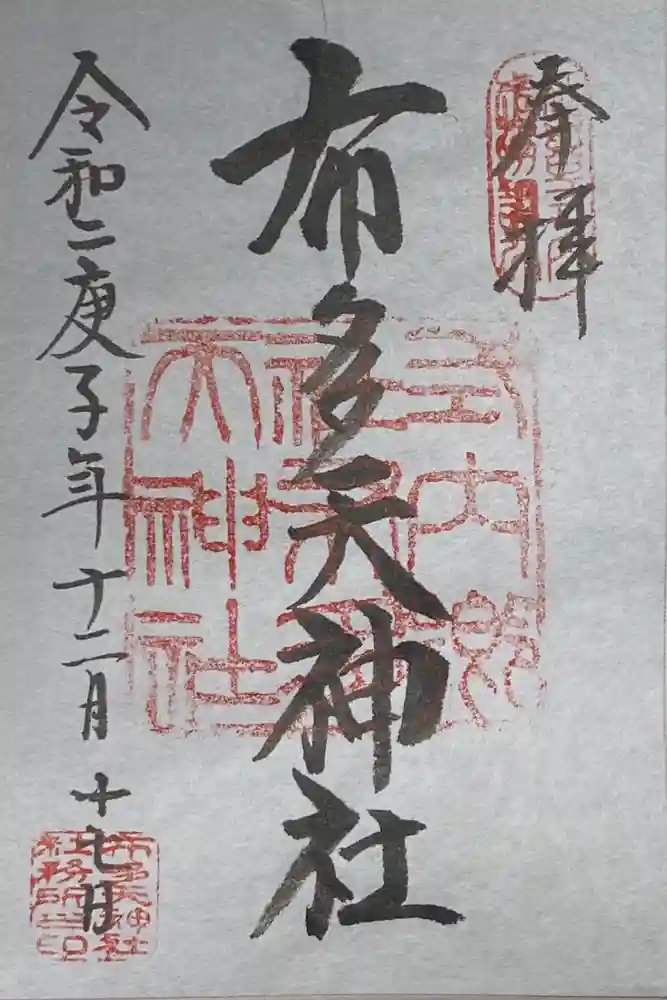 奉拝
布多天神社
令和二庚子年十二月十七日
式内郷
社布多
天神社
布多天神社
社務所之印